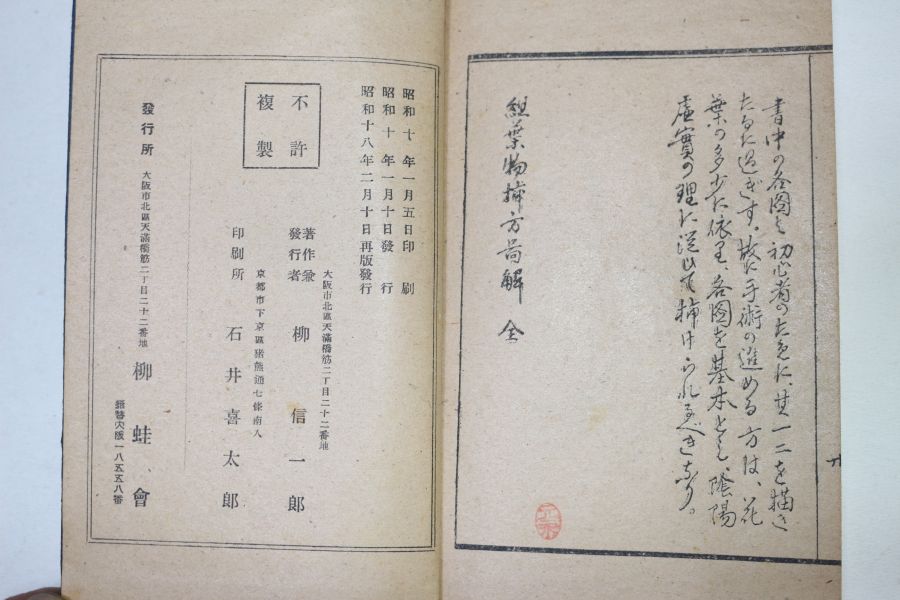 書中の各図は初心者のために、其一二を描き
たるに過ぎす。故に手術の進める方は、花
葉の多少に依り、各図を基本とし、陰陽
虚實の理に従ひて挿けられるべきなり。
組葉物挿方图解 全
昭和十年一月五日印刷
昭和十年一月十日發行
昭和十八年二月十日再版發行
不許
複製
大阪市北區天滿橋筋二丁目二十二番地
著作兼
發行者 柳信一郎
京都市下京區猪熊通七條南入
印刷所 石井喜太郎
發行所 大阪市北區天滿橋筋二丁目二十二番地 柳蛙會
振替大阪一八五五八番